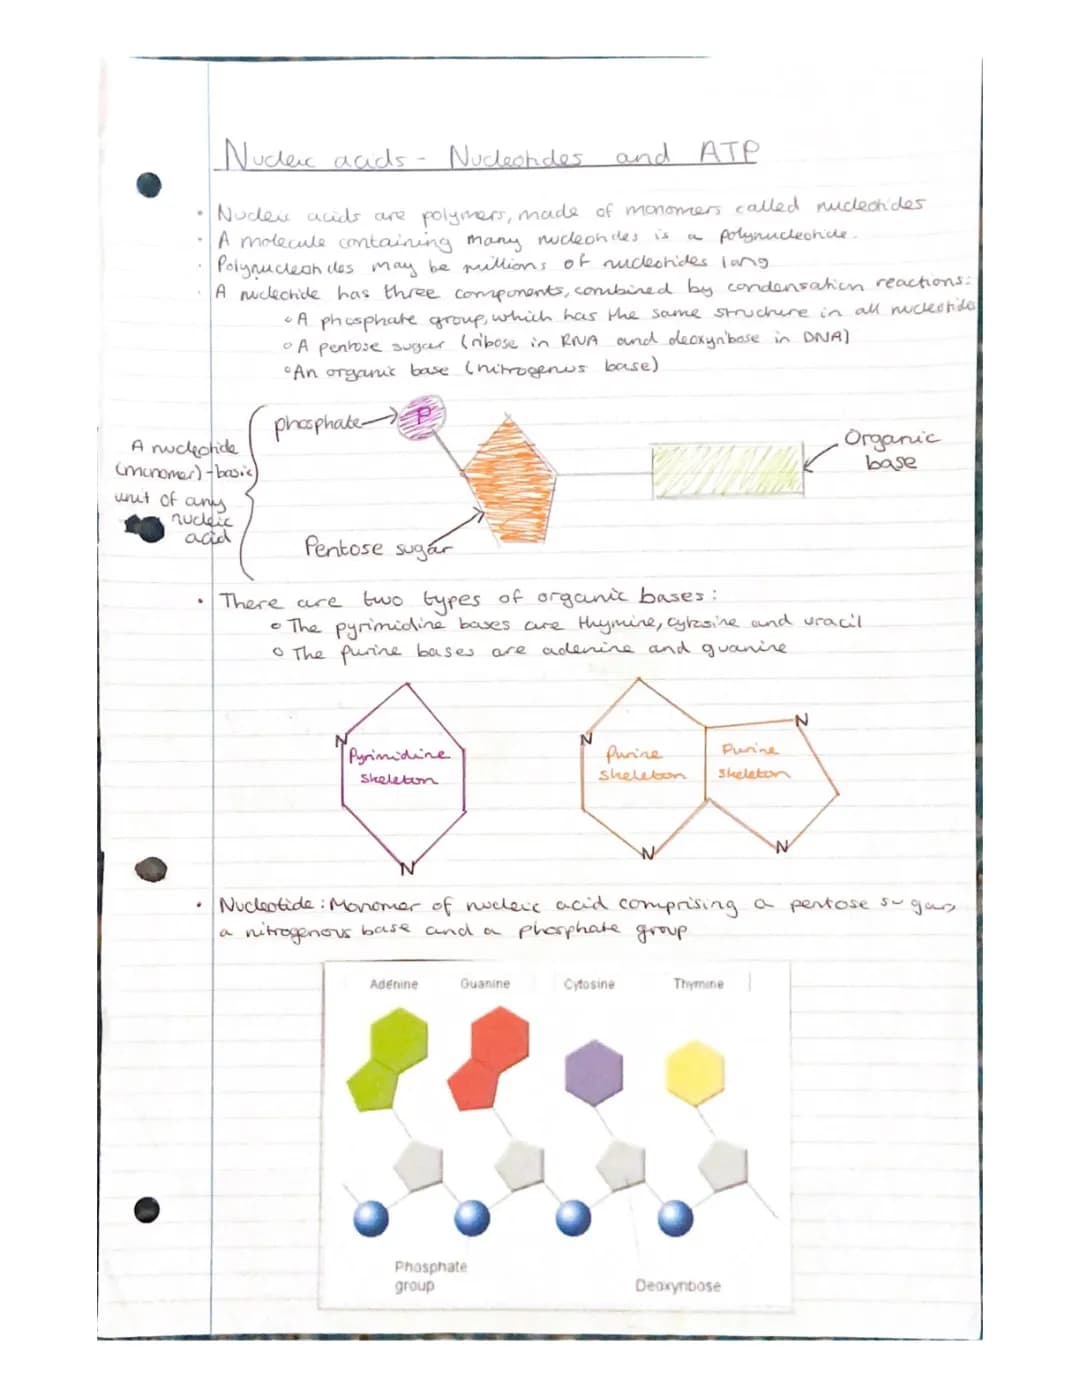 Nucleic acids - Nucleotides and ATP
• Nucleic acids are polymers, made of monomers called nucleotides
• A molecule containing many nucleotides is a polynucleotide.
• Polynucleotides may be millions of nucleotides long
• A nucleotide has three components, combined by condensation reactions:
◦ A phosphate group, which has the same structure in all nucleotide
◦ A pentose sugar (ribose in RNA and deoxyribose in DNA)
◦ An organic base (nitrogenus base)
phosphate
P
A nucleotide
(monomer) - basic
unit of any
nucleic
acid
Organic
base
Pentose sugar
• There are two types of organic bases:
◦ The pyrimidine bases are thymine, cytosine and uracil
◦ The purine bases are adenine and guanine
N
Pyrimidine
skeleton
N
N
Purine
skeleton
N
N
Purine
skeleton
N
• Nucleotide: Monomer of nucleic acid comprising a pentose sugar,
a nitrogenous base and a phosphate group
Adenine Guanine Cytosine Thymine
Phosphate
group
Deoxyribose